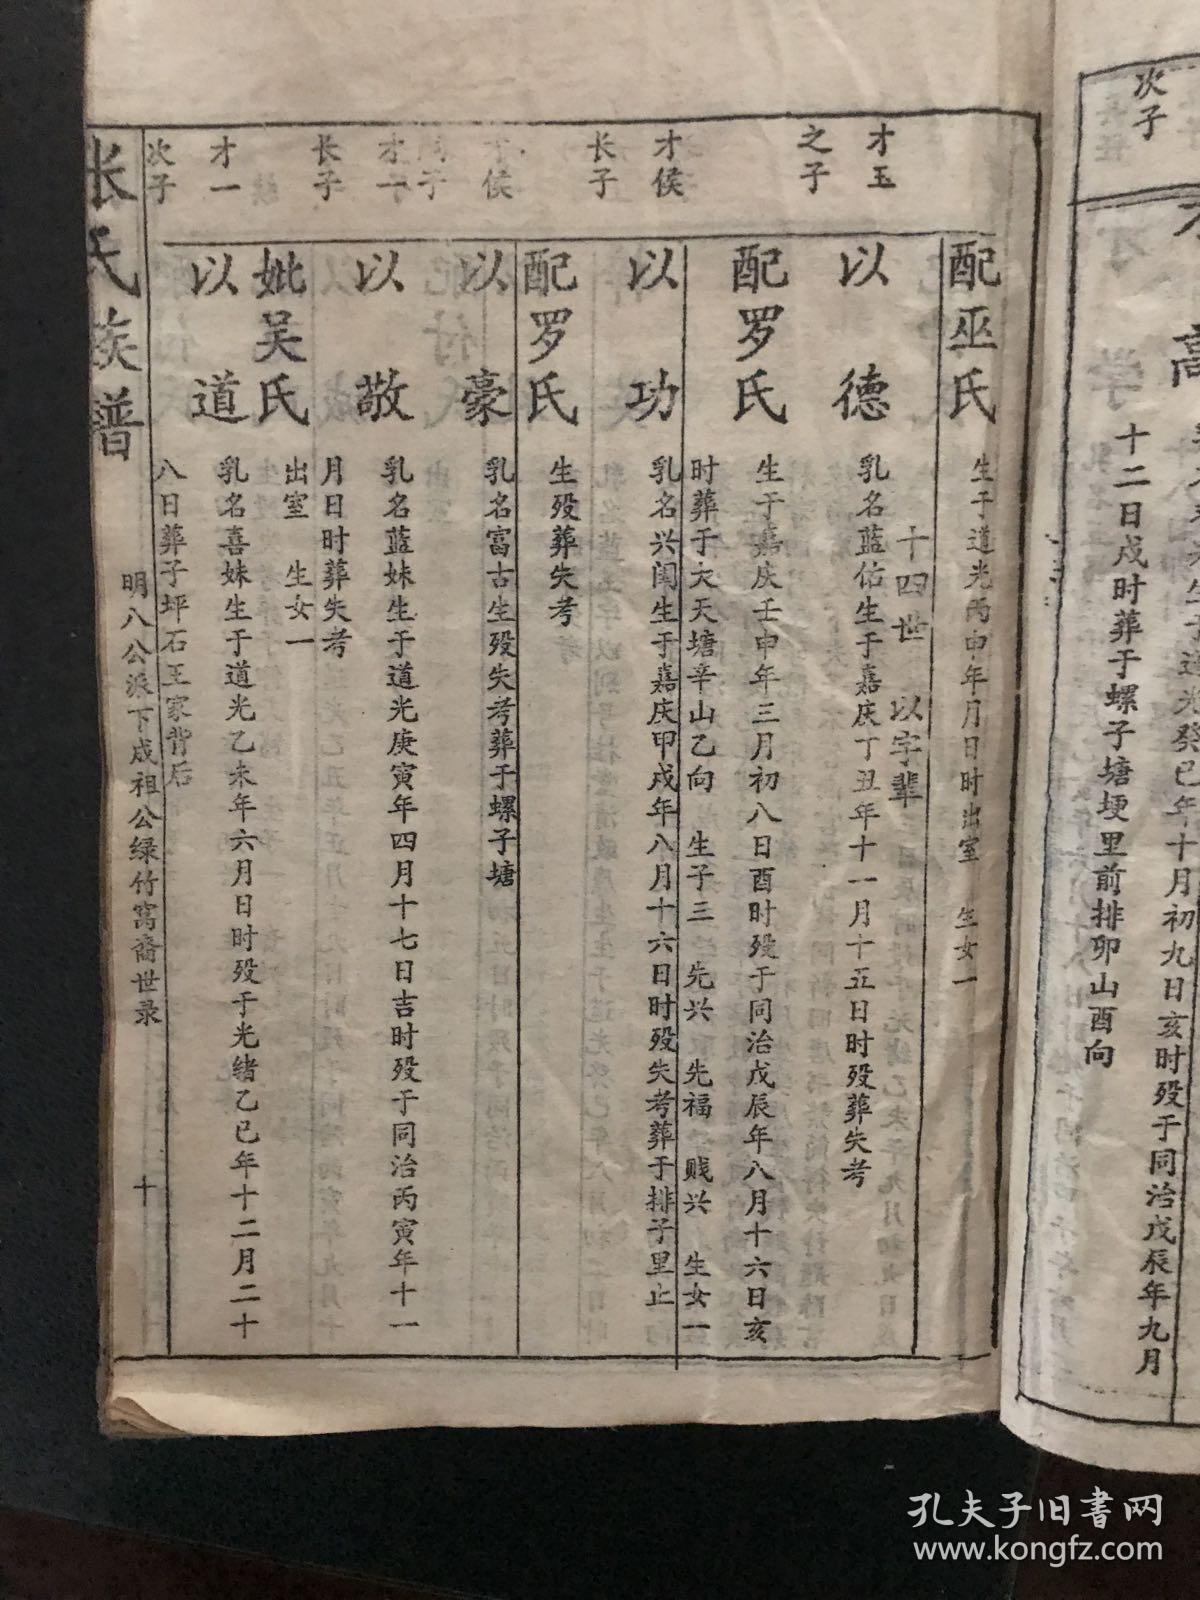 次子
高
十二日戍时葬于螺子塘埂里前排卯山酉向
生于道光癸巳年十月初九日亥时殁于同治戊辰年九月
配巫氏
生于道光丙申年月日时出室 生女一
十四世 以字辈
才玉之子
以德
乳名蓝估生于嘉庆丁丑年十一月十五日时殁葬失考
配罗氏
生于嘉庆壬申年三月初八日酉时殁于同治戊辰年八月十六日亥
时葬于大天塘辛山乙向 生子三 先兴 先福 贱兴 生女一
才侯长子
以功
乳名兴闺生于嘉庆甲戍年八月十六日时殁失考葬于排子里止
配罗氏
生殁葬失考
才侯
以豪
乳名富古生殁失考葬于螺子塘
才一长子
以敬
乳名蓝妹生于道光庚寅年四月十七日吉时殁于同治丙寅年十一
月日时葬失考
妣吴氏
出室 生女一
才一次子
以道
乳名喜妹生于道光乙未年六月日时殁于光绪乙巳年十二月二十
八日葬子坪石王家背后
张氏族谱
明八公派下成祖公绿竹窝裔世录
十
孔夫子旧书网
www.kongfz.com